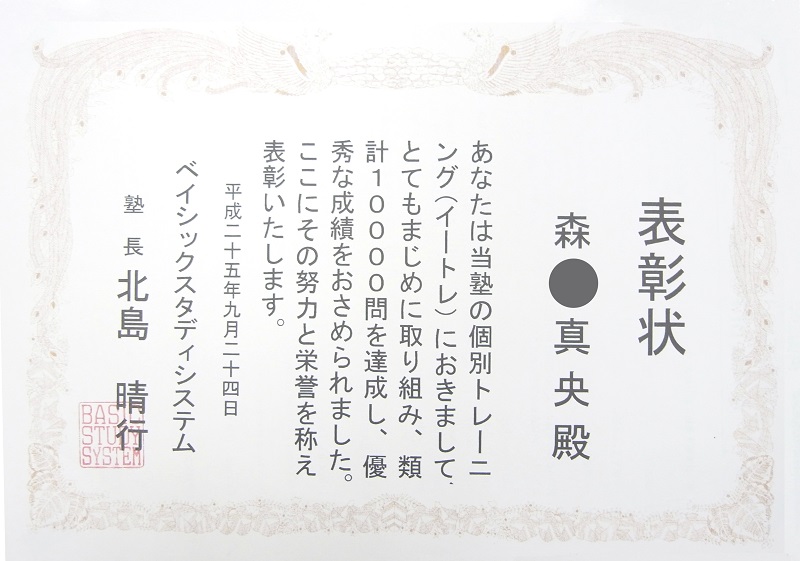 表彰状
森●真央殿
あなたは当塾の個別トレーニ
ング（イートレ）におきまして、
とてもまじめに取り組み、類
計１００００問を達成し、優
秀な成績をおさめられました。
ここにその努力と栄誉を称え
表彰いたします。
平成二十五年九月二十四日
ベイシックスタディシステム
塾長 北島 晴行
BASIC
STUDY
SYSTEM